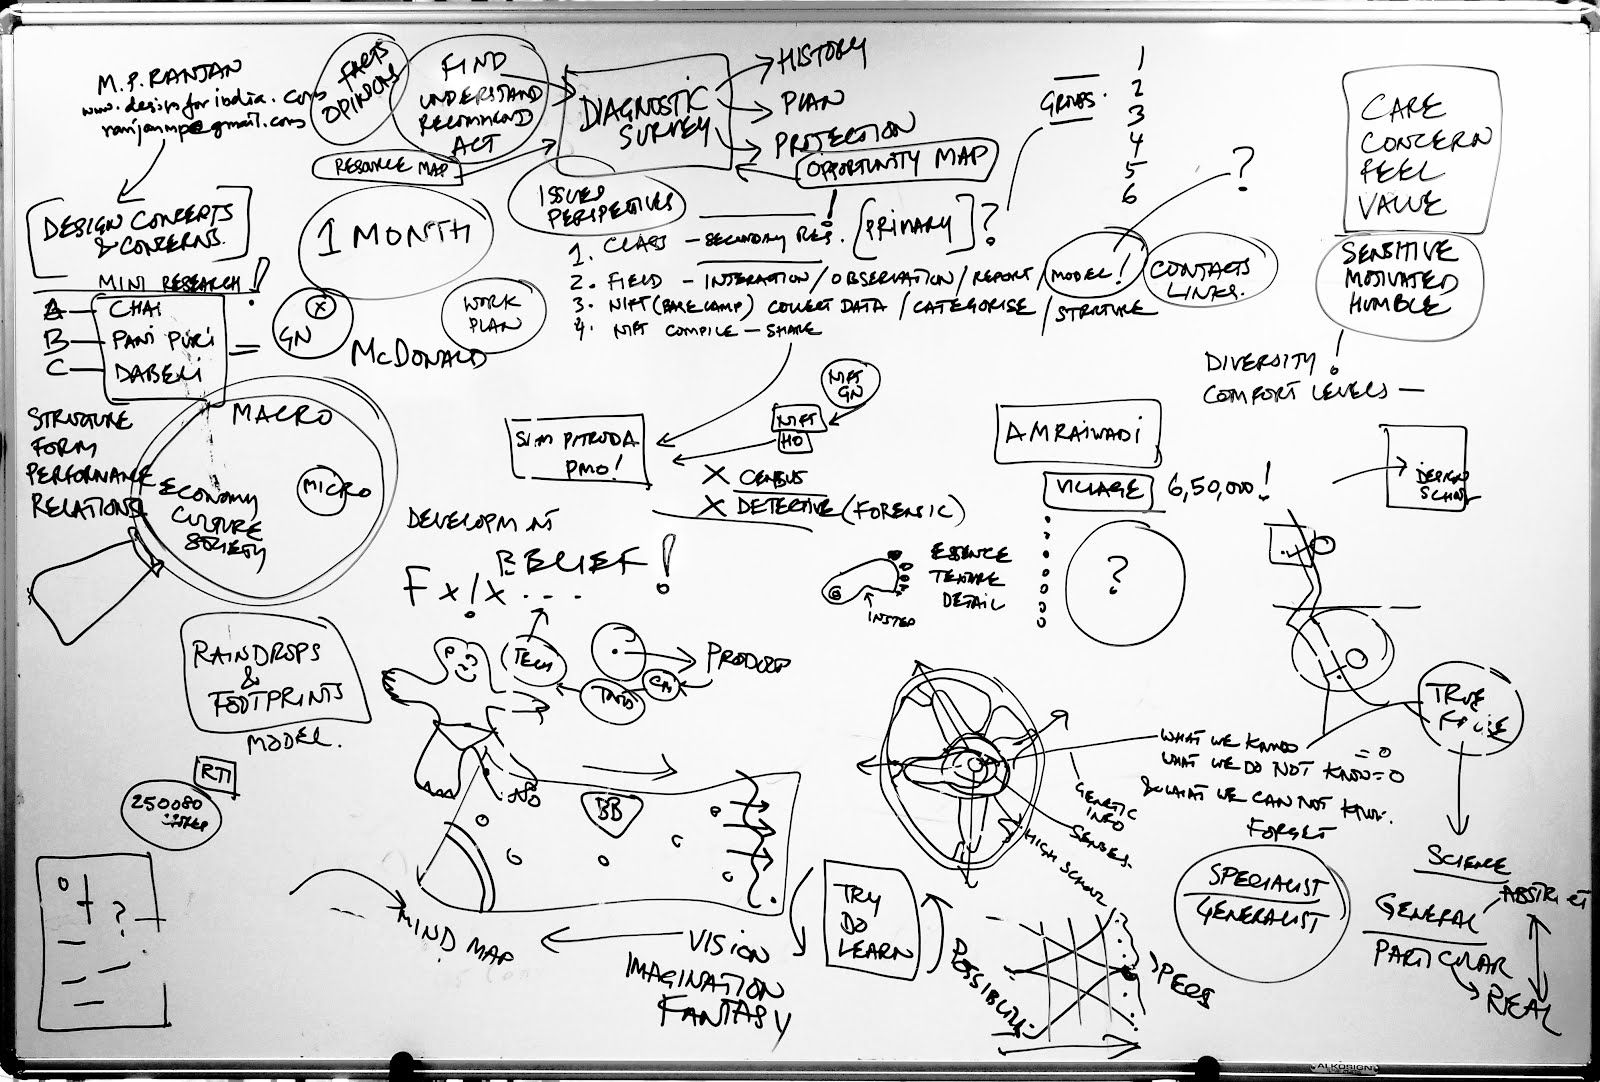 M.P. RANJAN
www.designforindia.com
ranjanmp@gmail.com
FACTS
OPINIONS
FIND
UNDERSTAND
RECOMMEND
ACT
RESOURCE MAP
DIAGNOSTIC
SURVEY
HISTORY
PLAN
PROTECTION
OPPORTUNITY MAP
GROUPS.
1
2
3
4
5
6
?
CARE
CONCERN
FEEL
VALUE
SENSITIVE
MOTIVATED
HUMBLE
!
DIVERSITY
COMFORT LEVELS —
DESIGN CONCEPTS
& CONCERNS.
MINI RESEARCH!
A — CHAI
B — PANI PURI
C — DABELI
=
GN
X
McDONALD
1 MONTH
WORK
PLAN
ISSUES
PERSPECTIVES
1. CLASS — SECONDARY RES. [PRIMARY]?
2. FIELD - INTERACTION / OBSERVATION / REPORT / MODEL!
3. NIFT (BASECAMP) COLLECT DATA / CATEGORISE / STRUCTURE
4. NIFT COMPILE — SHARE
CONTACTS
LINKS.
STRUCTURE
FORM
PERFORMANCE
RELATIONS
MACRO
MICRO
ECONOMY
CULTURE
SOCIETY
SAM PITRODA
PMO!
NIFT
GN
NIFT
HO
X CENSUS
X DETECTIVE (FORENSIC)
AMRAIWADI
VILLAGE 6,50,000!
?
DESIGN
SCHOOL
DEVELOPMENT
BELIEF!
F x!x ...
ESSENCE
DETAIL
INSTEP
RAINDROPS
&
FOOTPRINTS
MODEL.
TECH
PRODUCT
RTI
250080
BB
?
MIND MAP
VISION
IMAGINATION
FANTASY
TRY
DO
LEARN
POSSIBILITY
PEGS
GENETIC
INFO
SENSES
HIGH SCHOOL
WHAT WE KNOW = 0
WHAT WE DO NOT KNOW = 0
& WHAT WE CAN NOT KNOW.
FORGET
TRUE
FALSE
SPECIALIST
GENERALIST
SCIENCE
GENERAL
ABSTRACT
PARTICULAR
REAL
ALKOSIGN